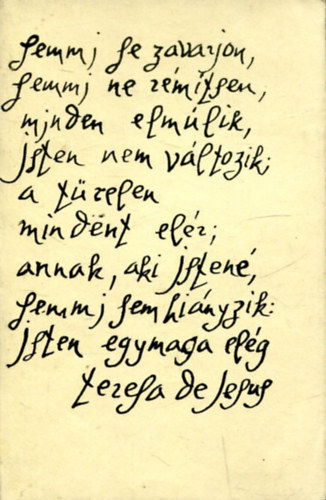 semmi se zavarjon,
semmi ne rémítsen,
minden elmúlik,
isten nem változik;
a türelem
mindent elér;
annak, aki istené,
semmi sem hiányzik:
isten egymaga elég
teresa de jesus